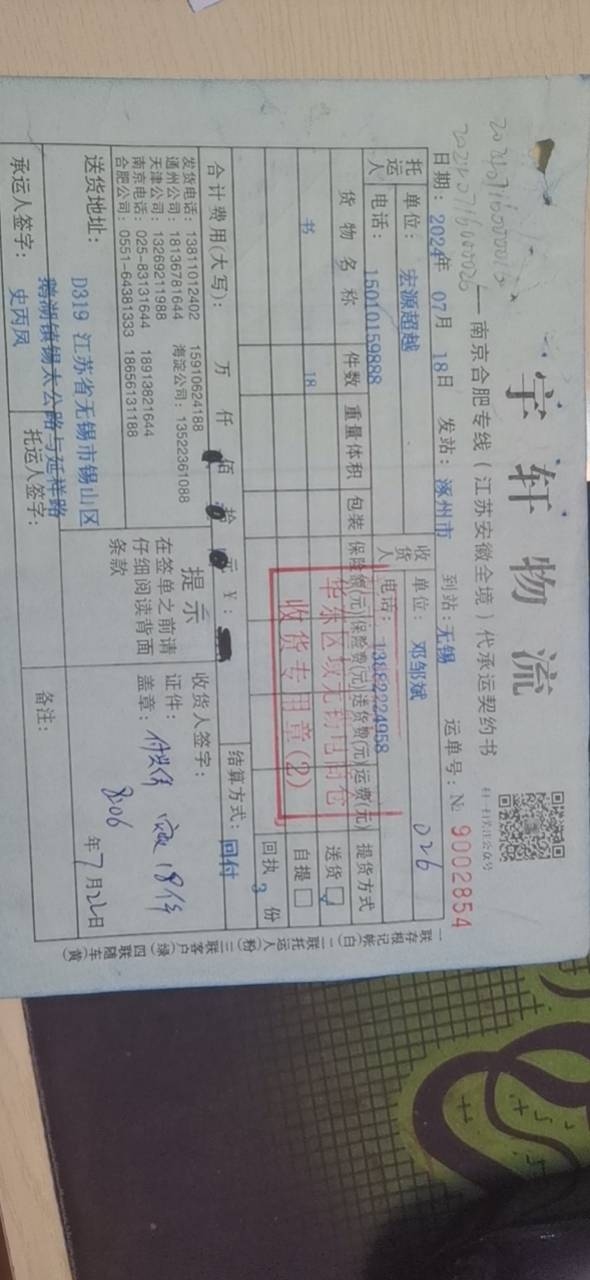 宇轩物流
扫一扫关注公众号
——南京合肥专线(江苏安徽全境)代承运契约书
运单号:№ 9002854
日期:2024年 07月 18日 发站:涿州市 到站:无锡
026
托运人 单位:宏源超越
电话:15010159888
收货人 单位:邓邹斌
电话:13882224958
货物名称 件数 重量体积 包装 保险额(元) 保险费(元) 送货费(元) 运费(元) 提货方式
书 18
送货
自提
回执 3 份
收货专用章(2)
合计费用(大写): 万 仟 佰 拾 元 ¥: 结算方式:回付
发货电话:13811012402 15910624188
通州公司:18136781644 海淀公司:13522361088
天津公司:13269211988
南京电话:025-83131644 18913821644
合肥公司:0551-64381333 18656131188
提示
在签单之前请
仔细阅读背面
条款
收货人签字:
证件:
盖章:
实收18件
8:06
年7月22日
送货地址: D319 江苏省无锡市锡山区
鹅湖镇锡太公路与延祥路
承运人签字: 史丙凤
托运人签字:
备注:
一联存根记帐(白) 二联托运人(粉) 三联客户(绿) 四联随车(黄)